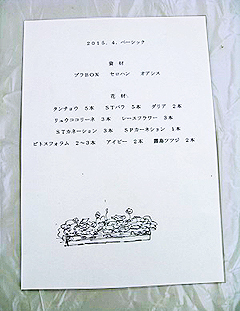 2015.4.ベーシック
資材
プラBOX セロハン オアシス
花材
タンチョウ 5本 STバラ 5本 ダリア 2本
リュウココリーネ 3本 レースフラワー 3本
STカーネション 3本 SPカーネション 1本
ピトスフォラム 2〜3本 アイビー 2本 霧島ツツジ 2本